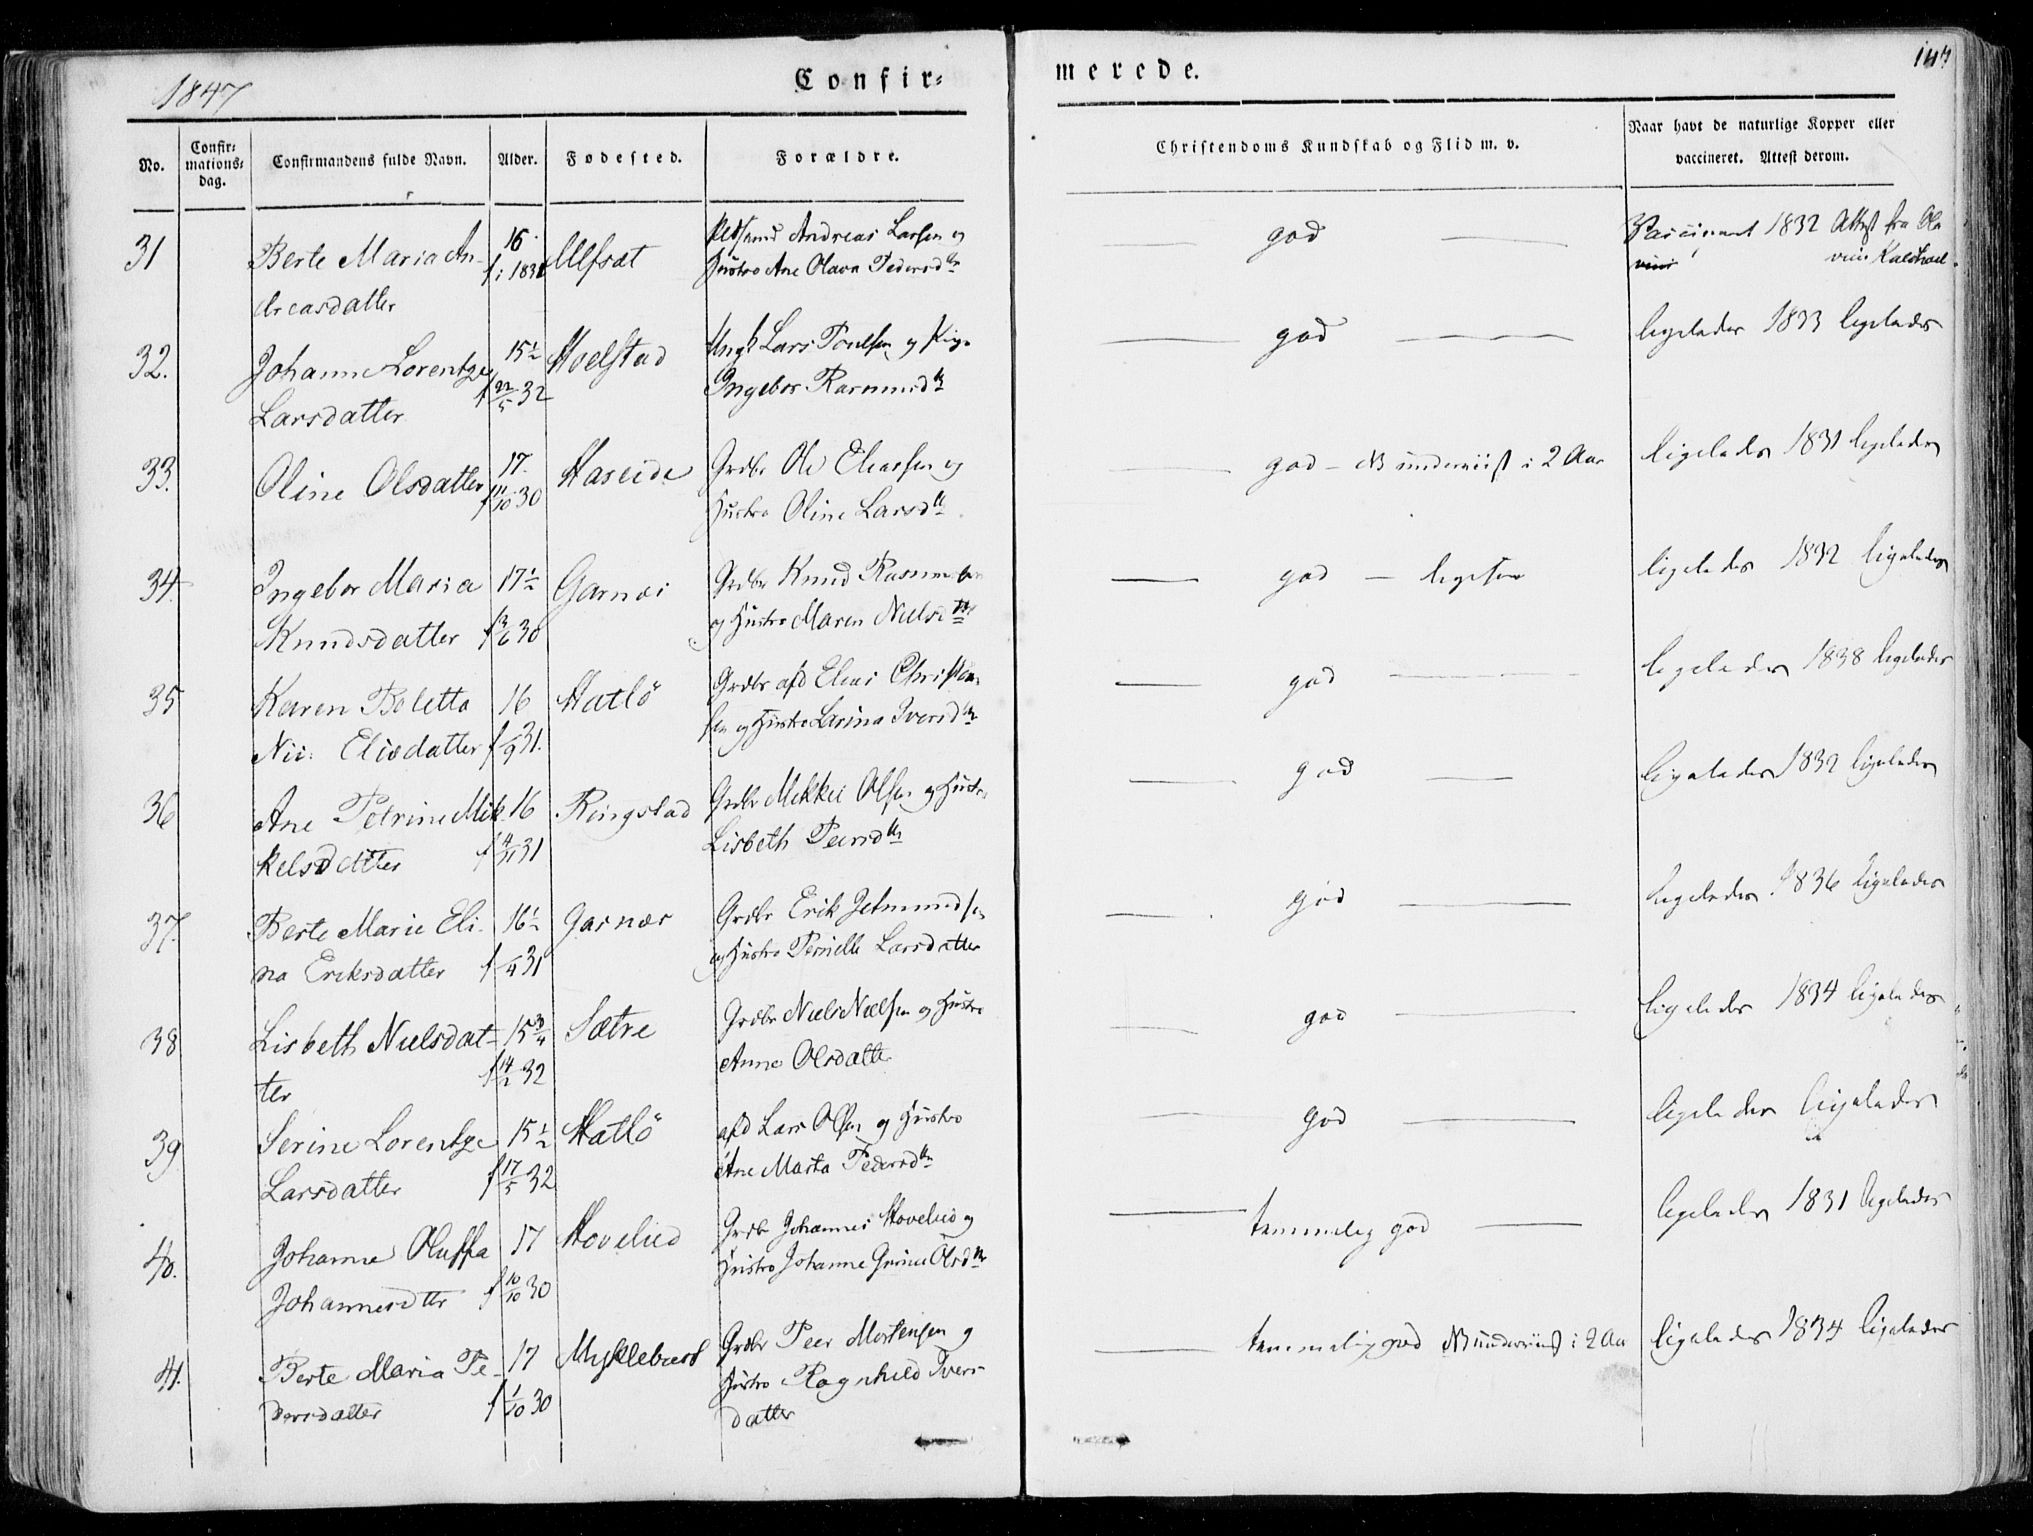 1847
Confir=
merede.
No.
Confir=
mations=
dag.
Confirmandens fulde Navn.
Alder.
Fødested.
Forældre.
Christendoms Kundskab og Flid m. v.
Naar havt de naturlige Kopper eller
vaccineret. Attest derom.
31 Berte Maria An- 16 Ulfsæt Andreas Larsen og god Vaccineret 1832 Attest fra Ola
dreasdatter f i 1831 Hustro Ane Olava Pedersdtr
32. Johanne Lorentze 15½ Hoelstad Lars Poulsen og Pige god ligeledes 1833 ligeledes
Larsdatter f 22/5 32 Ingebor Rasmusdtr
33. Oline Olsdatter 17. Haseide Grdbr Ole Eliassen og god - NB underviist i 2 Aar ligeledes 1831 ligeledes
f 11/10 30 Hustro Oline Larsdtr
34. Ingebor Maria 17½ Garnæs Grdbr Knud Rasmussen god - ligesom ligeledes 1832 ligeledes
Knudsdatter f 3/6 30 og Hustro Maren Nielsdtr
35 Karen Boletta 16 Hatlö Grdbr afd Elias Christen- god ligeledes 1838 ligeledes
Eliasdatter f /9 31. sen og Hustro Larina Iversdtr
36 Ane Petrine Mik- 16 Ringstad Grdbr Mikkel Olsen og Hustro god ligeledes 1832 ligeledes
kelsdatter f 4/11 31 Lisbeth Peersdtr
37. Berte Marie Eli- 16½ Garnæs Grdbr Erik Jetmundsen god ligeledes 1836 ligeledes
na Eriksdatter f /4 31 og Hustro Pernille Larsdatter
38 Lisbeth Nielsdat- 15¾ Sætre Grdbr Niels Nielsen og Hustro god ligeledes 1834 ligeledes
ter f 14/2 32 Anne Olsdatter
39 Serine Lorentze 15½ Hatlö afd Lars Olsen og Hustro god ligeledes ligeledes
Larsdatter f 17/5 32 Ane Marta Pedersdtr
40. Johanne Oluffa 17 Hovelied Grdbr Johannes Hovelied og temmelig god ligeledes 1831 ligeledes
Johannesdtr f 10/10 30 Hustro Johanne Olsdtr
41. Berte Maria Pe- 17 Myklebust Grdbr Peer Mortensen og temmelig god NB underviist i 2 Aar ligeledes 1834 ligeledes
dersdatter f 1/10 30 Hustro Ragnhild Ivers
datter